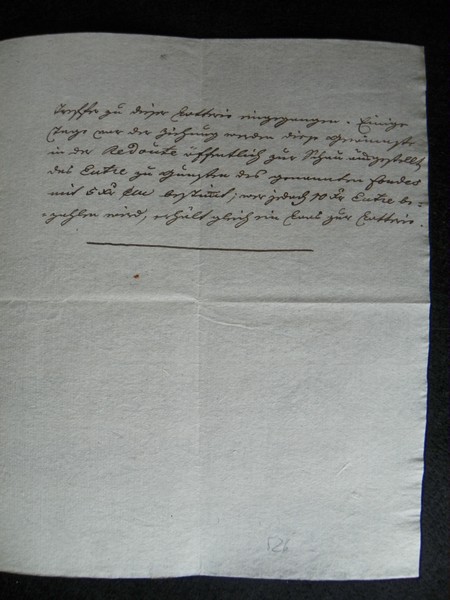 Treffer zu dieser Lotterie eingegangen. Einige
Tage vor der Ziehung werden diese Gewinnste
in der Redoute öffentlich zur Schau ausgestellt,
das Entre zu Gunsten des genannten Fondes
mit 5 Xr CM bestimt; wer jedoch 10 Xr Entre be=
zahlen wird, erhält gleich ein Loos zur Lotterie.
126